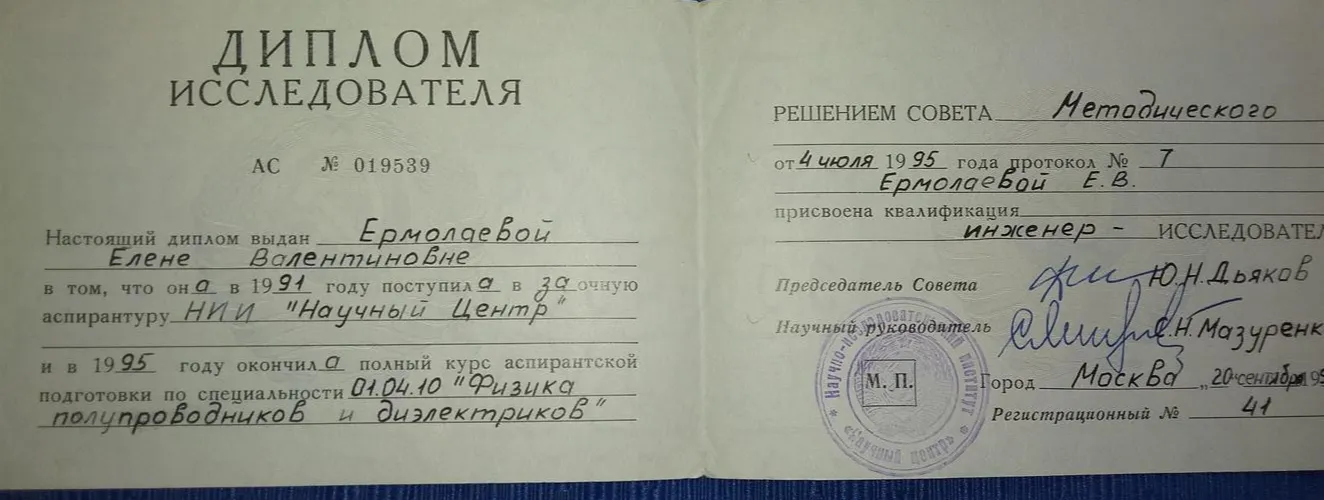 ДИПЛОМ
ИССЛЕДОВАТЕЛЯ
АС № 019539
Настоящий диплом выдан Ермолаевой
Елене Валентиновне
в том, что она в 1991 году поступила в заочную
аспирантуру НИИ "Научный Центр"
и в 1995 году окончила полный курс аспирантской
подготовки по специальности 01.04.10 "Физика
полупроводников и диэлектриков"
РЕШЕНИЕМ СОВЕТА Методического
от 4 июля 1995 года протокол № 7
Ермолаевой Е.В.
присвоена квалификация
инженер - ИССЛЕДОВАТЕЛ
Председатель Совета Ю.Н.Дьяков
Научный руководитель Е.Н.Мазуренк
М. П.
Город Москва „20 сентября 199
Регистрационный № 41
Научно-исследовательский институт
«Научный центр»